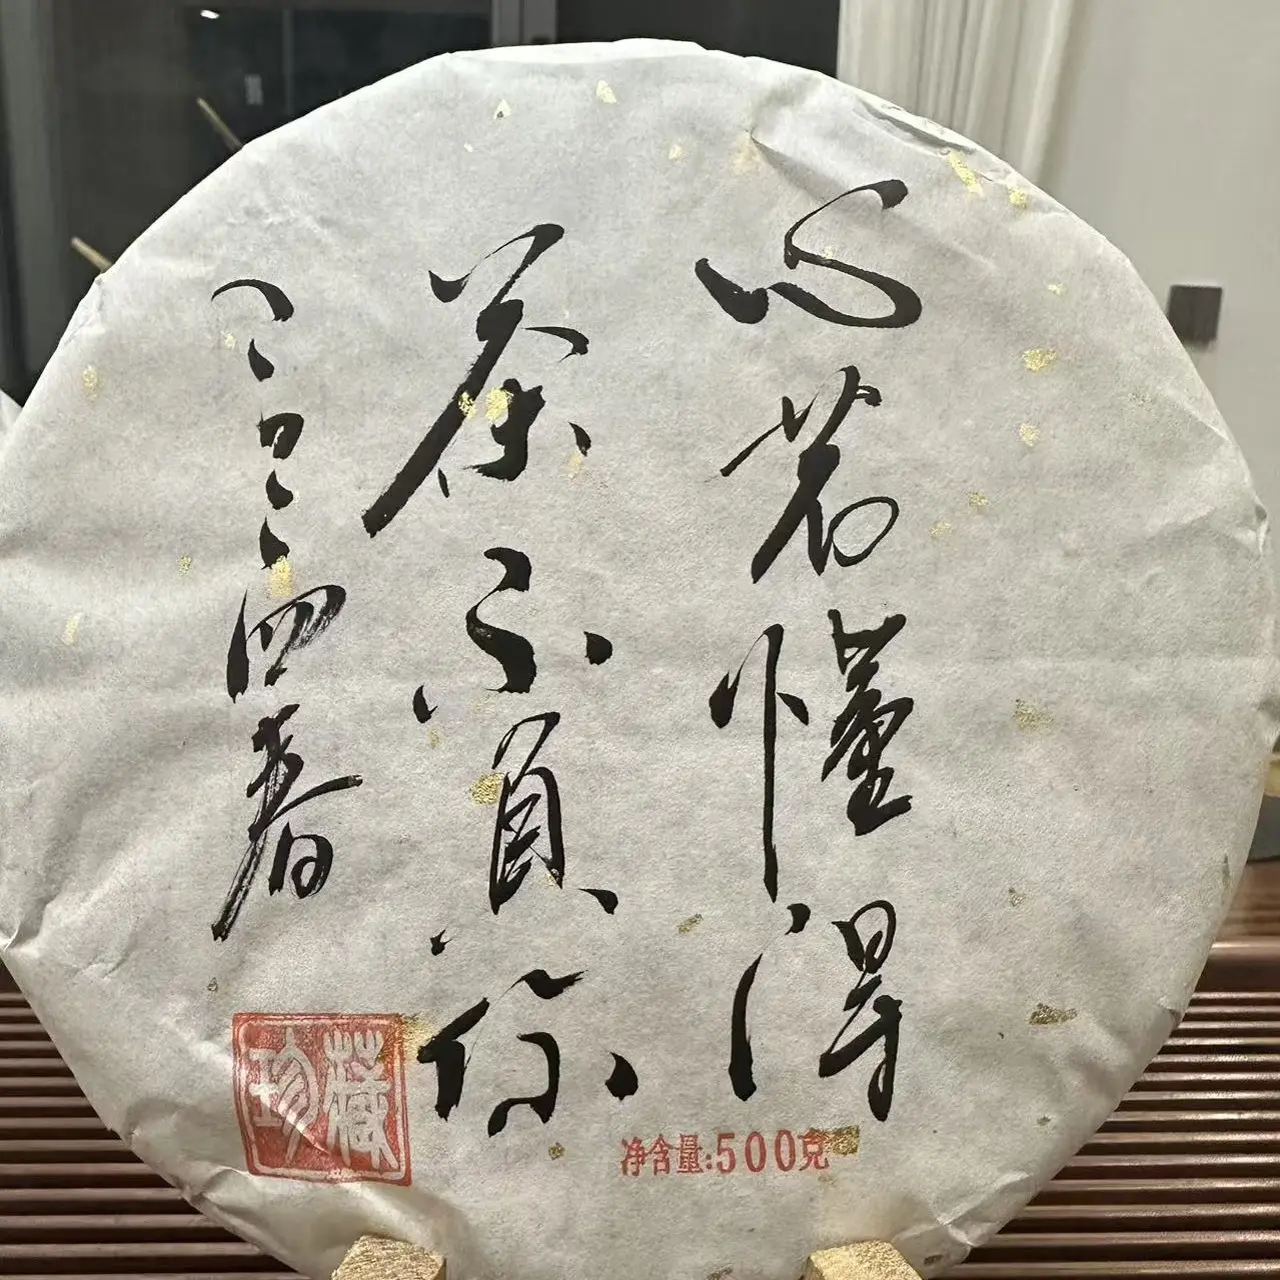 心若懂得
茶不負你
二〇二四春
珍藏
净含量:500克